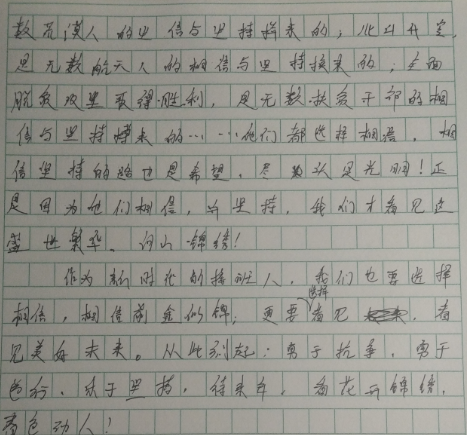 数荒漠人的坚信与坚持择来的；北斗升空，
是无数航天人的相信与坚持换来的；全面
脱贫攻坚取得胜利，是无数扶贫干部的相
信与坚持换来的……他们都选择相信，相
信坚持的路也是希望，尽头从是光明！正
是因为他们相信，并坚持，我们才看见这
盛世繁华、河山锦绣！
作为新时代的接班人，我们也要选择
相信，相信前途似锦；更要选择看见，看
见美好未来。从此刻起：勇于抗争，勇于
笃行，乐于坚持，待来年，看花开锦绣，
春色动人！